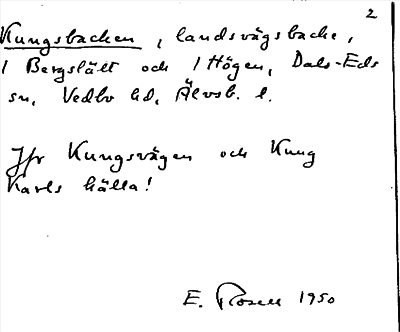 2
Kungsbacken, landsvägsbacke,
i Bergslätt och i Högen, Dals-Eds
sn, Vedbo hd, Älvsb. l.
Jfr Kungsvägen och Kung
Karls källa!
E. Rosell 1950